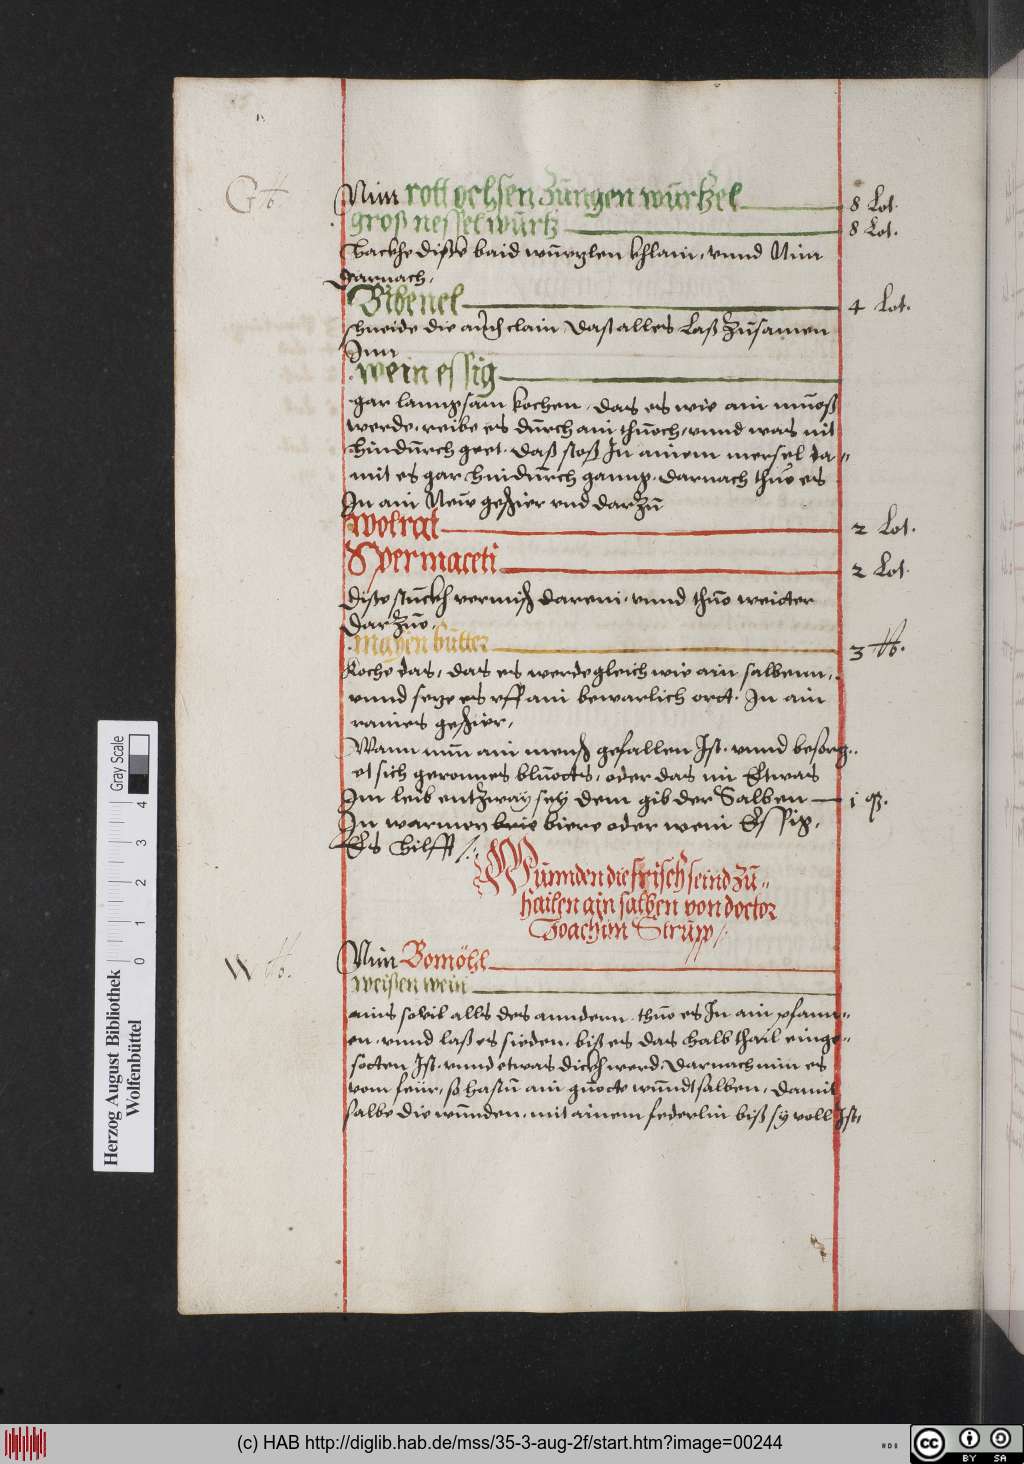 G lb.
Nim rott ochsen zungen würtzel 8 Lot.
groß nessel würtz 8 Lot.
hackhe diße baid würtzlen khlain, vnnd Nim
darnach,
Bibenel 4 Lot.
schneide die auch clain das alles Laß zusamen
Inn
wein essig
gar lanngsam kochen, das es wie ain muoß
werde, reibe es durch ain thuoch, vnnd was nit
hindurch geet, daß stoß In ainem mersel da=
mit es gar hindurch ganng, darnach thuo es
In ain New geschier vnd dar zu
wolrat 2 Lot.
Spermaceti 2 Lot.
diße stuckh vermisch darein, vnnd thuo weitter
dar Zuo,
mayen butter 3 lb.
Koche das, das es werde gleich wie ain salbenn,
vnnd setze es vff ain bewarlich ortt. In ain
raines geschier,
Wann nun ain mensch gefallen Ist, vnnd besorg=
et sich geronnes bluotts, oder das im Ettwas
Im leib entzway sey dem gib der Salben 1 q.
In warmen bier oder wein Essig,
Es hilfft
Wunnden die frisch seind zu=
hailen ain salben von doctor
Joachim Strupp
W lb.
Nim Bomöhl
weißen wein
ains sovil alls des anndern, thuo es In ain pfann=
en, vnnd laß es sieden, biß es das halb thail einge=
sotten Ist, vnnd etwas dickh werd, darnach nim es
vom feür, so hastu ain guotte wundt salben, damit
salbe die wunden, mit ainem federlin biß sy voll Ist,
Herzog August Bibliothek
Wolfenbüttel
Gray Scale
0 1 2 3 4
(c) HAB http://diglib.hab.de/mss/35-3-aug-2f/start.htm?image=00244
cc BY SA